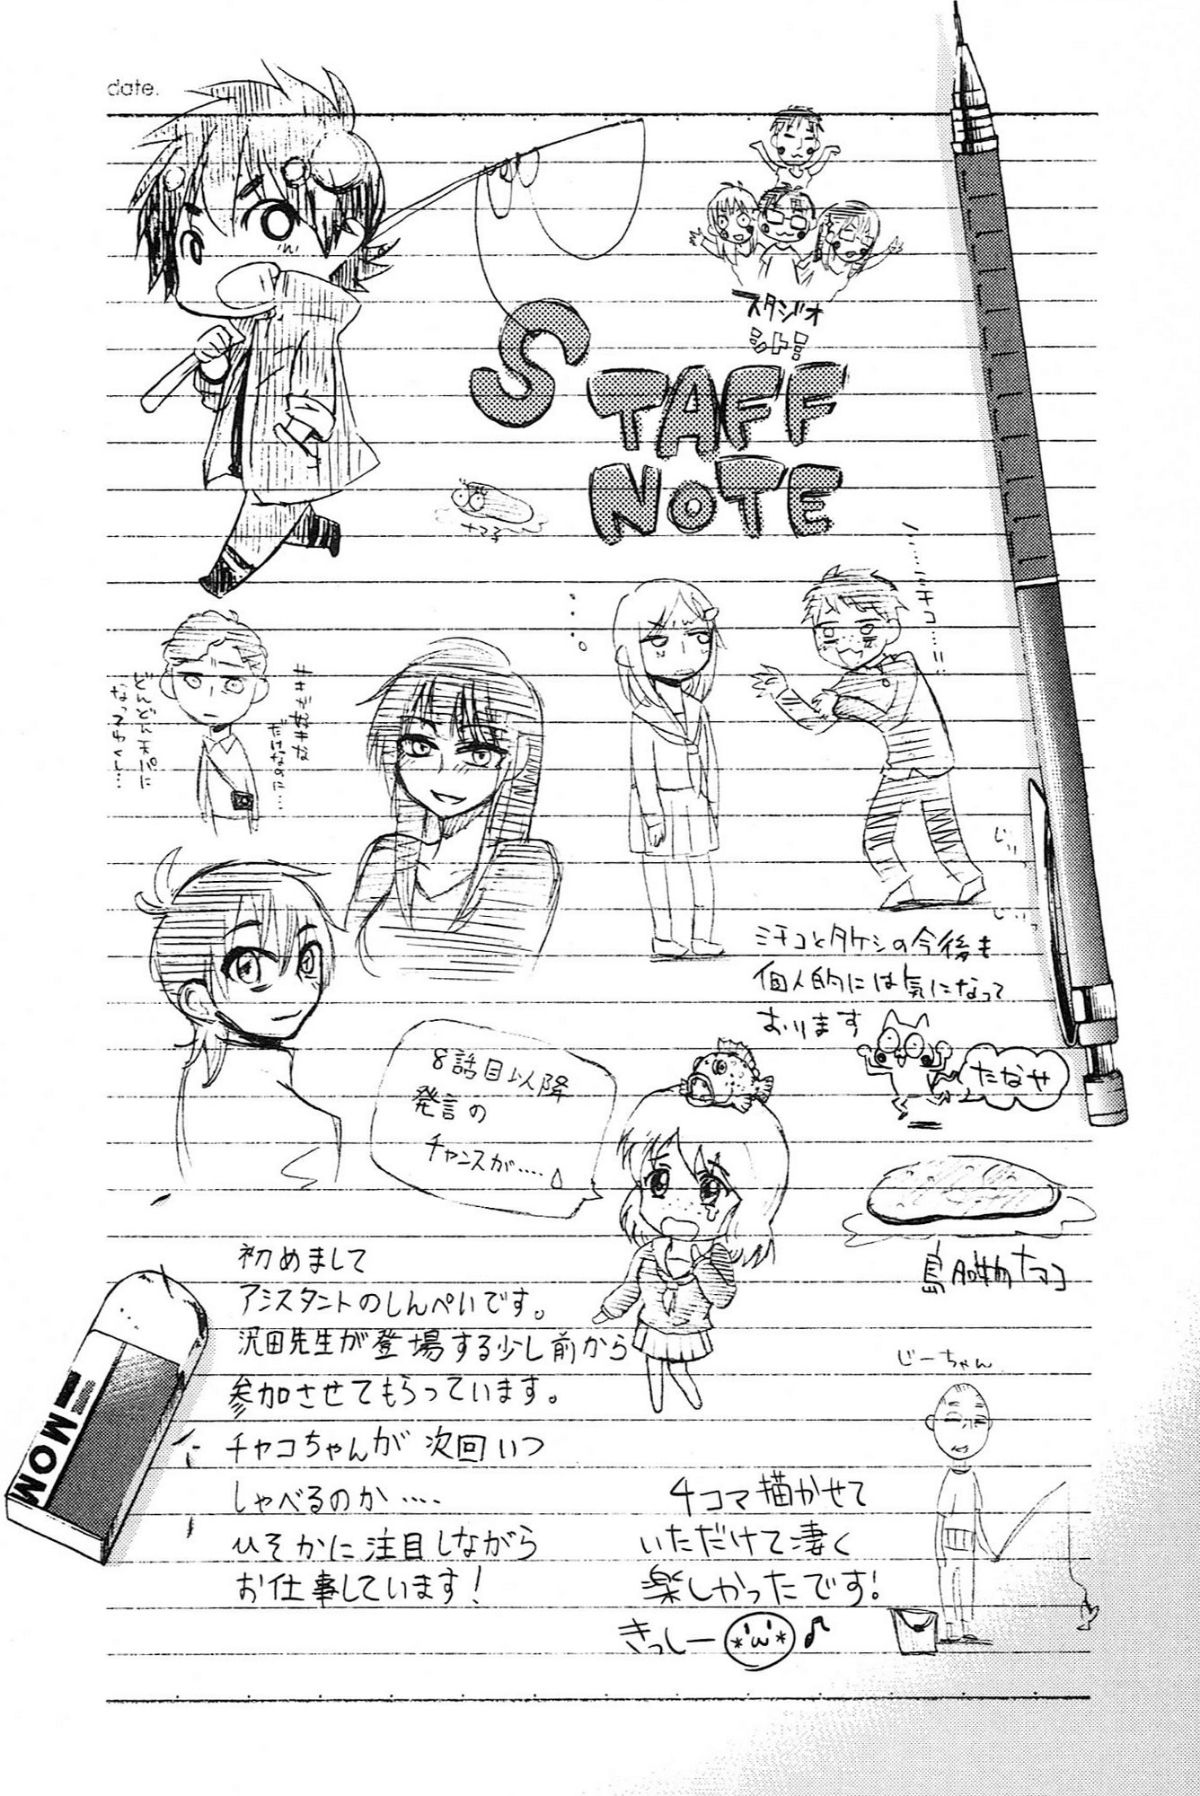 date.
スタジオ
シトミ
STAFF
NOTE
ナマコ
どんどん天パに
なってゆくん…
……ミチコ…!!
じいっ
じいっ
ミチコとタケシの今後も
個人的には気になって
おります
たなせ
8話目以降
発言の
チャンスが....
島名物ナマコ
初めまして
アシスタントのしんぺいです。
沢田先生が登場する少し前から
参加させてもらっています。
チャコちゃんが次回いつ
しゃべるのか....
ひそかに注目しながら
お仕事しています!
MONO
じーちゃん
4コマ描かせて
いただけて凄く
楽しかったです!
きっしー